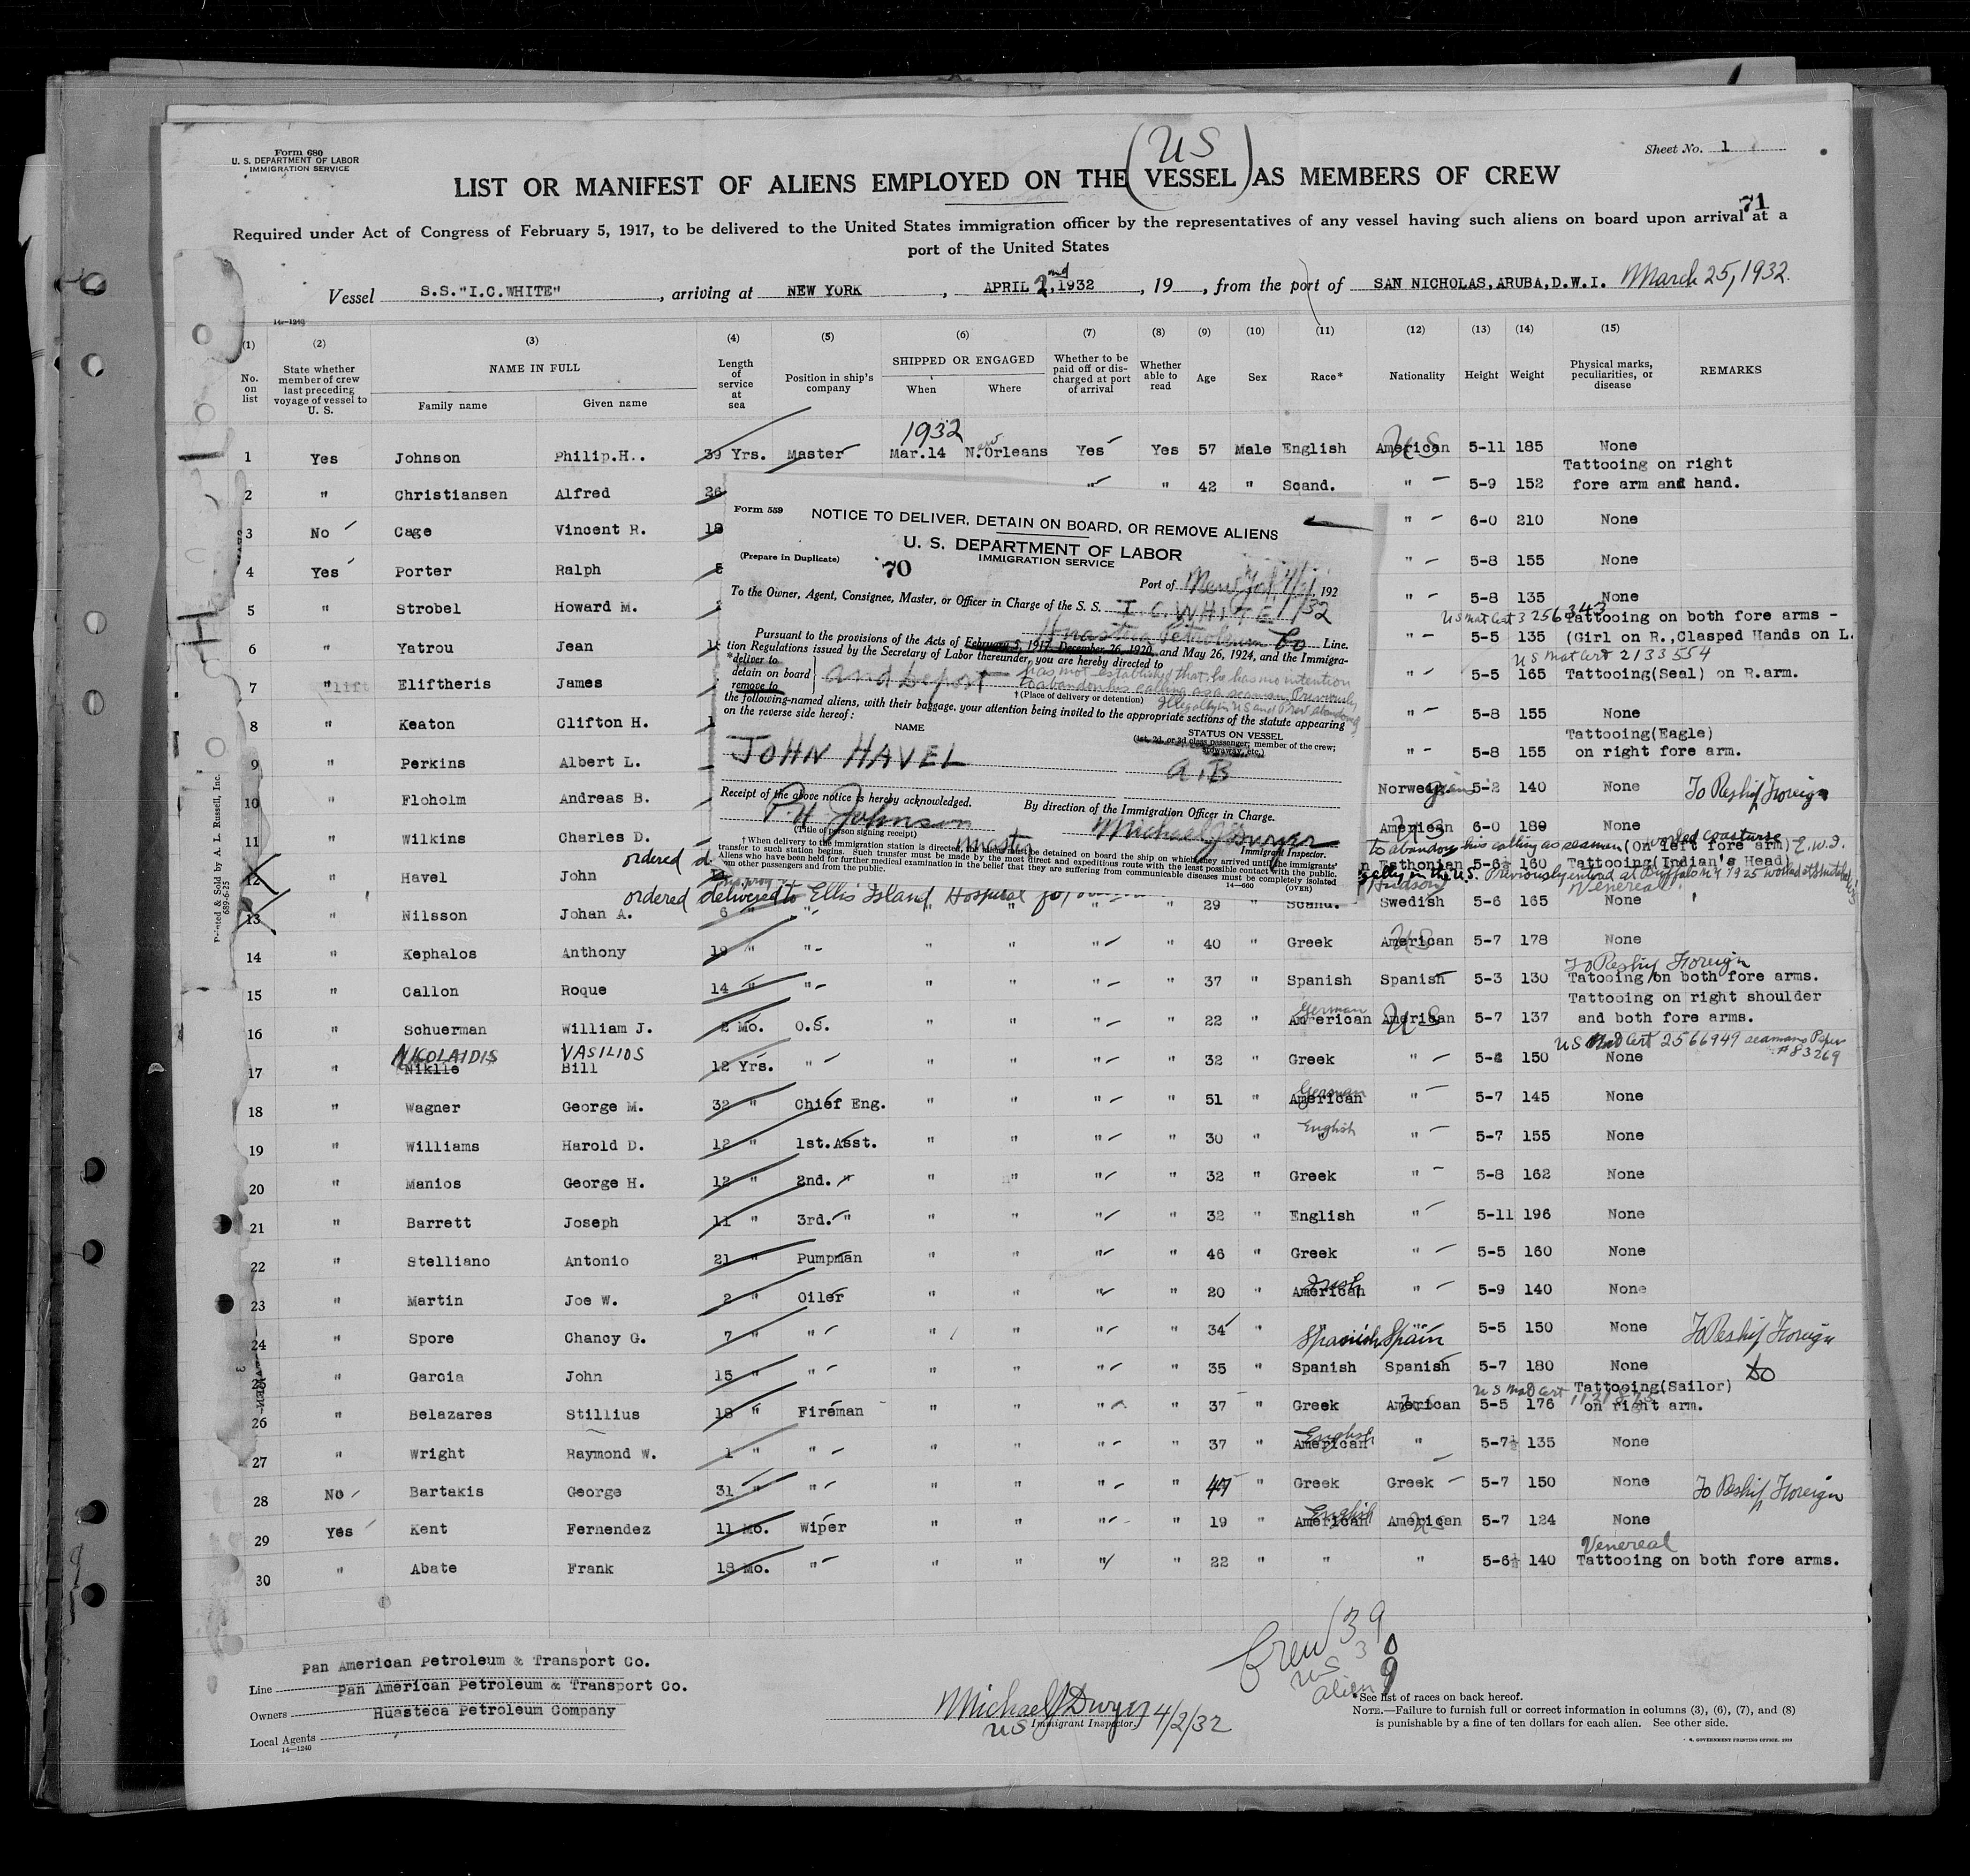 Form 680
U. S. DEPARTMENT OF LABOR
IMMIGRATION SERVICE
Sheet No. 1
(US)
LIST OR MANIFEST OF ALIENS EMPLOYED ON THE VESSEL AS MEMBERS OF CREW
71
Required under Act of Congress of February 5, 1917, to be delivered to the United States immigration officer by the representatives of any vessel having such aliens on board upon arrival at a
port of the United States
Vessel S.S."I.C.WHITE", arriving at NEW YORK, APRIL 2nd,1932, 19 , from the port of SAN NICHOLAS,ARUBA,D.W.I. March 25, 1932.
14-1240
(1) (2) (3) (4) (5) (6) (7) (8) (9) (10) (11) (12) (13) (14) (15)
No. on list
State whether member of crew last preceding voyage of vessel to U. S.
NAME IN FULL
Family name
Given name
Length of service at sea
Position in ship's company
SHIPPED OR ENGAGED
When
Where
Whether to be paid off or discharged at port of arrival
Whether able to read
Age
Sex
Race*
Nationality
Height
Weight
Physical marks, peculiarities, or disease
REMARKS
1932
1 Yes Johnson Philip.H.. 39 Yrs. Master Mar.14 N.Orleans Yes Yes 57 Male English American US 5-11 185 None
2 " Christiansen Alfred 26 " " 42 " Scand. " 5-9 152 Tattooing on right fore arm and hand.
3 No Cage Vincent R. 18 " 6-0 210 None
4 Yes Porter Ralph " 5-8 155 None
5 " Strobel Howard M. " 5-8 135 None
US Nat Cert 3256343
6 " Yatrou Jean " 5-5 135 Tattooing on both fore arms - (Girl on R.,Clasped Hands on L.
US Nat Cert 2133554
7 " Eliftheris James " 5-5 165 Tattooing(Seal) on R.arm.
8 " Keaton Clifton H. " 5-8 155 None
9 " Perkins Albert L. " 5-8 155 Tattooing(Eagle) on right fore arm.
10 " Floholm Andreas B. Norwegian 5-2 140 None To Reship Foreign
11 " Wilkins Charles D. American US 6-0 180 None
to abandon his calling as seaman (On left fore arm)
12 " Havel John Esthonian 5-6½ 160 Tattooing(Indian's Head)
Previously entered at Buffalo NY 1925
Venereal
ordered delivered to Ellis Island Hospital
13 " Nilsson Johan A. 6 " " " " " " 29 " Scand. Swedish 5-6 165 None
14 " Kephalos Anthony 19 " " " " " " 40 " Greek American US 5-7 178 None
To Reship Foreign
15 " Callon Roque 14 " " " " " " 37 " Spanish Spanish 5-3 130 Tatooing on both fore arms.
16 " Schuerman William J. 2 Mo. O.S. " " " " 22 " American German American US 5-7 137 Tattooing on right shoulder and both fore arms.
US Nat Cert 2566949 seamans Paper #83269
NIKOLAIDIS VASILIOS
17 " Niklie Bill 12 Yrs. " " " " " 32 " Greek " 5-4 150 None
18 " Wagner George M. 32 " Chief Eng. " " " " 51 " American German " 5-7 145 None
19 " Williams Harold D. 12 " 1st.Asst. " " " " 30 " English " 5-7 155 None
20 " Manios George H. 12 " 2nd. " " " " " 32 " Greek " 5-8 162 None
21 " Barrett Joseph 11 " 3rd. " " " " " 32 " English " 5-11 196 None
22 " Stelliano Antonio 21 " Pumpman " " " " 46 " Greek " 5-5 160 None
23 " Martin Joe W. 2 " Oiler " " " " 20 " American Irish " 5-9 140 None
24 " Spore Chancy G. 7 " " " " " " 34 " Spanish Spain 5-5 150 None To Reship Foreign
25 " Garcia John 15 " " " " " " 35 " Spanish Spanish 5-7 180 None do
US Nat Cert
26 " Belazares Stillius 18 " Fireman " " " " 37 " Greek American US 5-5 176 Tattooing(Sailor) on right arm.
27 " Wright Raymond W. 1 " " " " " " 37 " American English " 5-7½ 135 None
28 No Bartakis George 31 " " " " " " 47 " Greek Greek 5-7 150 None To Reship Foreign
29 Yes Kent Fernendez 11 Mo. Wiper " " " " 19 " American English American US 5-7 124 None
Venereal
30 " Abate Frank 18 Mo. " " " " " 22 " " " 5-6½ 140 Tattooing on both fore arms.
Form 559
NOTICE TO DELIVER, DETAIN ON BOARD, OR REMOVE ALIENS
U. S. DEPARTMENT OF LABOR
IMMIGRATION SERVICE
(Prepare in Duplicate)
70
Port of New York 4/2/32, 192
To the Owner, Agent, Consignee, Master, or Officer in Charge of the S. S. I. C. WHITE
Huasteca Petroleum Co Line.
Pursuant to the provisions of the Acts of February 5, 1917, December 26, 1920, and May 26, 1924, and the Immigra-
tion Regulations issued by the Secretary of Labor thereunder, you are hereby directed to
*deliver to
detain on board
remove to
and Deport
has not established that he has no intention
to abandon his calling as a seaman. Previously
illegally in US and
†(Place of delivery or detention)
the following-named aliens, with their baggage, your attention being invited to the appropriate sections of the statute appearing
on the reverse side hereof:
NAME
STATUS ON VESSEL
(1st, 2d, or 3d class passenger; member of the crew; stowaway, etc.)
JOHN HAVEL
A.B
Receipt of the above notice is hereby acknowledged.
By direction of the Immigration Officer in Charge.
P.H. Johnson
Michael J Dwyer
(Title of person signing receipt)
Master
Immigrant Inspector.
† When delivery to the immigration station is directed, the aliens must be detained on board the ship on which they arrived until the immigrants'
transfer to such station begins. Such transfer must be made by the most direct and expeditious route with the least possible contact with the public.
Aliens who have been held for further medical examination in the belief that they are suffering from communicable diseases must be completely isolated
from other passengers and from the public.
14-660
(OVER)
Printed & Sold by A. L. Russell, Inc.
689-6-25
Line Pan American Petroleum & Transport Co.
Owners Pan American Petroleum & Transport Co.
Local Agents Huasteca Petroleum Company
14-1240
Michael J Dwyer 4/2/32
US Immigrant Inspector.
Crew 39
US 30
alien 9
*See list of races on back hereof.
NOTE.—Failure to furnish full or correct information in columns (3), (6), (7), and (8)
is punishable by a fine of ten dollars for each alien. See other side.